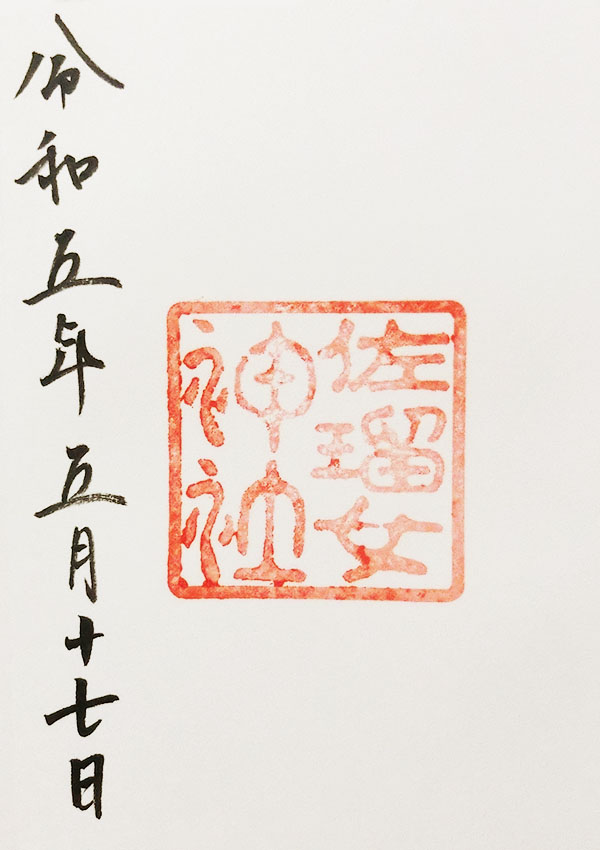 佐瑠女
神社
令和五年五月十七日